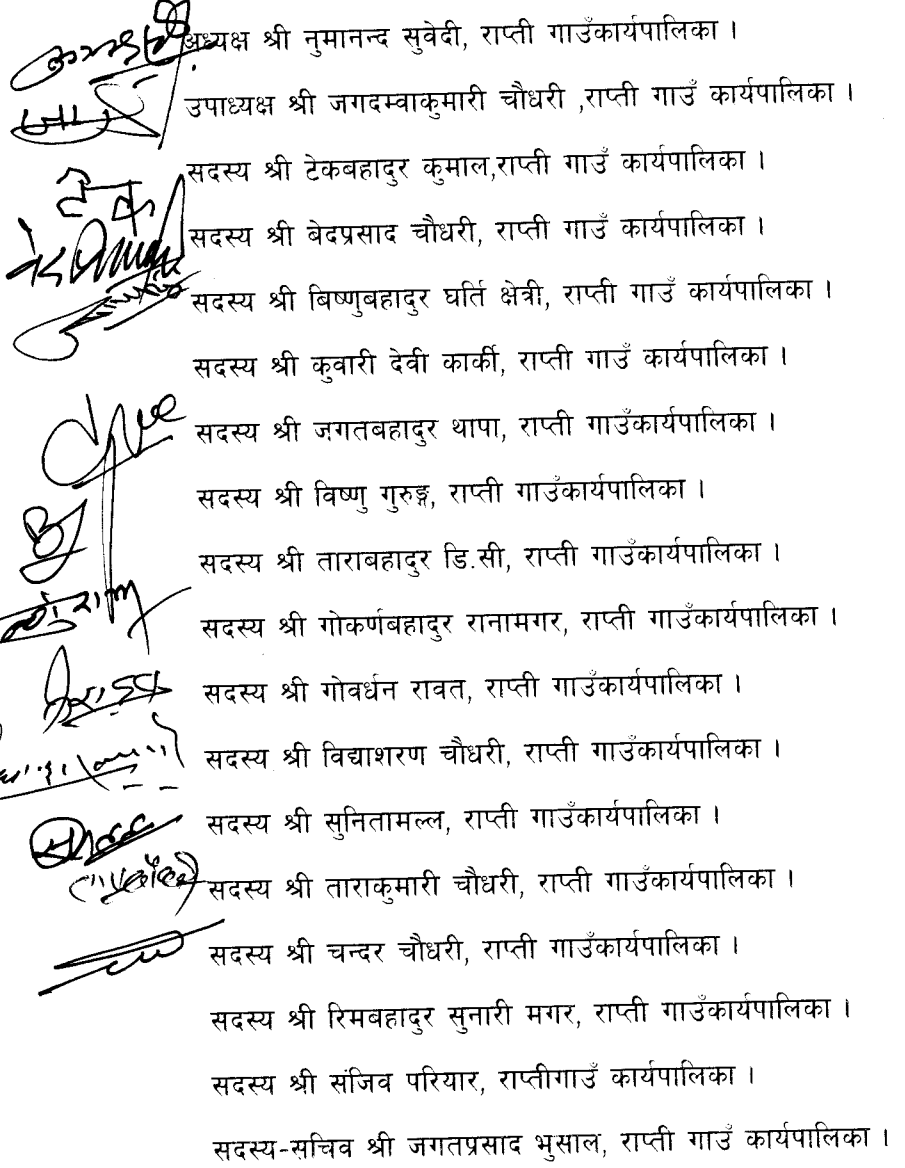 अध्यक्ष श्री नुमानन्द सुवेदी, राप्ती गाउँकार्यपालिका ।
उपाध्यक्ष श्री जगदम्वाकुमारी चौधरी ,राप्ती गाउँ कार्यपालिका ।
सदस्य श्री टेकबहादुर कुमाल,राप्ती गाउँ कार्यपालिका ।
टेक
सदस्य श्री बेदप्रसाद चौधरी, राप्ती गाउँ कार्यपालिका ।
सदस्य श्री बिष्णुबहादुर घर्ति क्षेत्री, राप्ती गाउँ कार्यपालिका ।
सदस्य श्री कुवारी देवी कार्की, राप्ती गाउँ कार्यपालिका ।
सदस्य श्री जगतबहादुर थापा, राप्ती गाउँकार्यपालिका ।
सदस्य श्री विष्णु गुरुङ्ग, राप्ती गाउँकार्यपालिका ।
सदस्य श्री ताराबहादुर डि.सी, राप्ती गाउँकार्यपालिका ।
सदस्य श्री गोकर्णबहादुर रानामगर, राप्ती गाउँकार्यपालिका ।
सदस्य श्री गोवर्धन रावत, राप्ती गाउँकार्यपालिका ।
सदस्य श्री विद्याशरण चौधरी, राप्ती गाउँकार्यपालिका ।
सदस्य श्री सुनितामल्ल, राप्ती गाउँकार्यपालिका ।
सदस्य श्री ताराकुमारी चौधरी, राप्ती गाउँकार्यपालिका ।
सदस्य श्री चन्दर चौधरी, राप्ती गाउँकार्यपालिका ।
सदस्य श्री रिमबहादुर सुनारी मगर, राप्ती गाउँकार्यपालिका ।
सदस्य श्री संजिव परियार, राप्तीगाउँ कार्यपालिका ।
सदस्य-सचिव श्री जगतप्रसाद भुसाल, राप्ती गाउँ कार्यपालिका ।